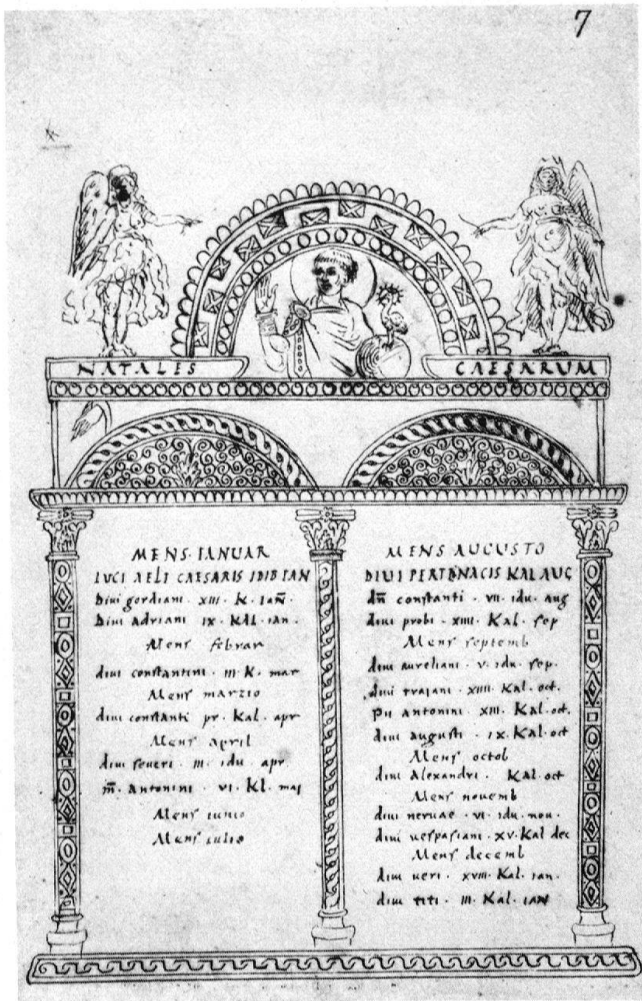 7
NATALES CAESARUM
MENS·IANUAR
LUCI AELI CAESARIS IDIB IAN
Diui gordiani · XIII · K · IAN̄
Diui adriani IX · KAL · ian ·
Mens februar
diui constantini · III · K · mar
Mens marzio
diui constanti pr · Kal · apr
Mens april
diui seueri · III · idu · apr
m̄ · antonini · VI · Kl · maj
Mens iunio
Mens iulio
MENS AUGUSTO
DIUI PERTINACIS KAL AUG
dn̄ constanti · VII · idu · aug
diui probi · XIIII · Kal · sep
Mens septemb
diui aureliani · V · idu · sep ·
diui traiani · XIIII · Kal · oct ·
pii antonini · XIII · Kal · oct ·
diui augusti · IX · Kal · oct
Mens octob
diui Alexandri · Kal · oct
Mens nouemb
diui neruae · VI · idu · nou ·
diui uespasiani · XV · Kal dec
Mens decemb
diui ueri · XVIII · Kal · ian ·
diui titi · III · Kal · IAN